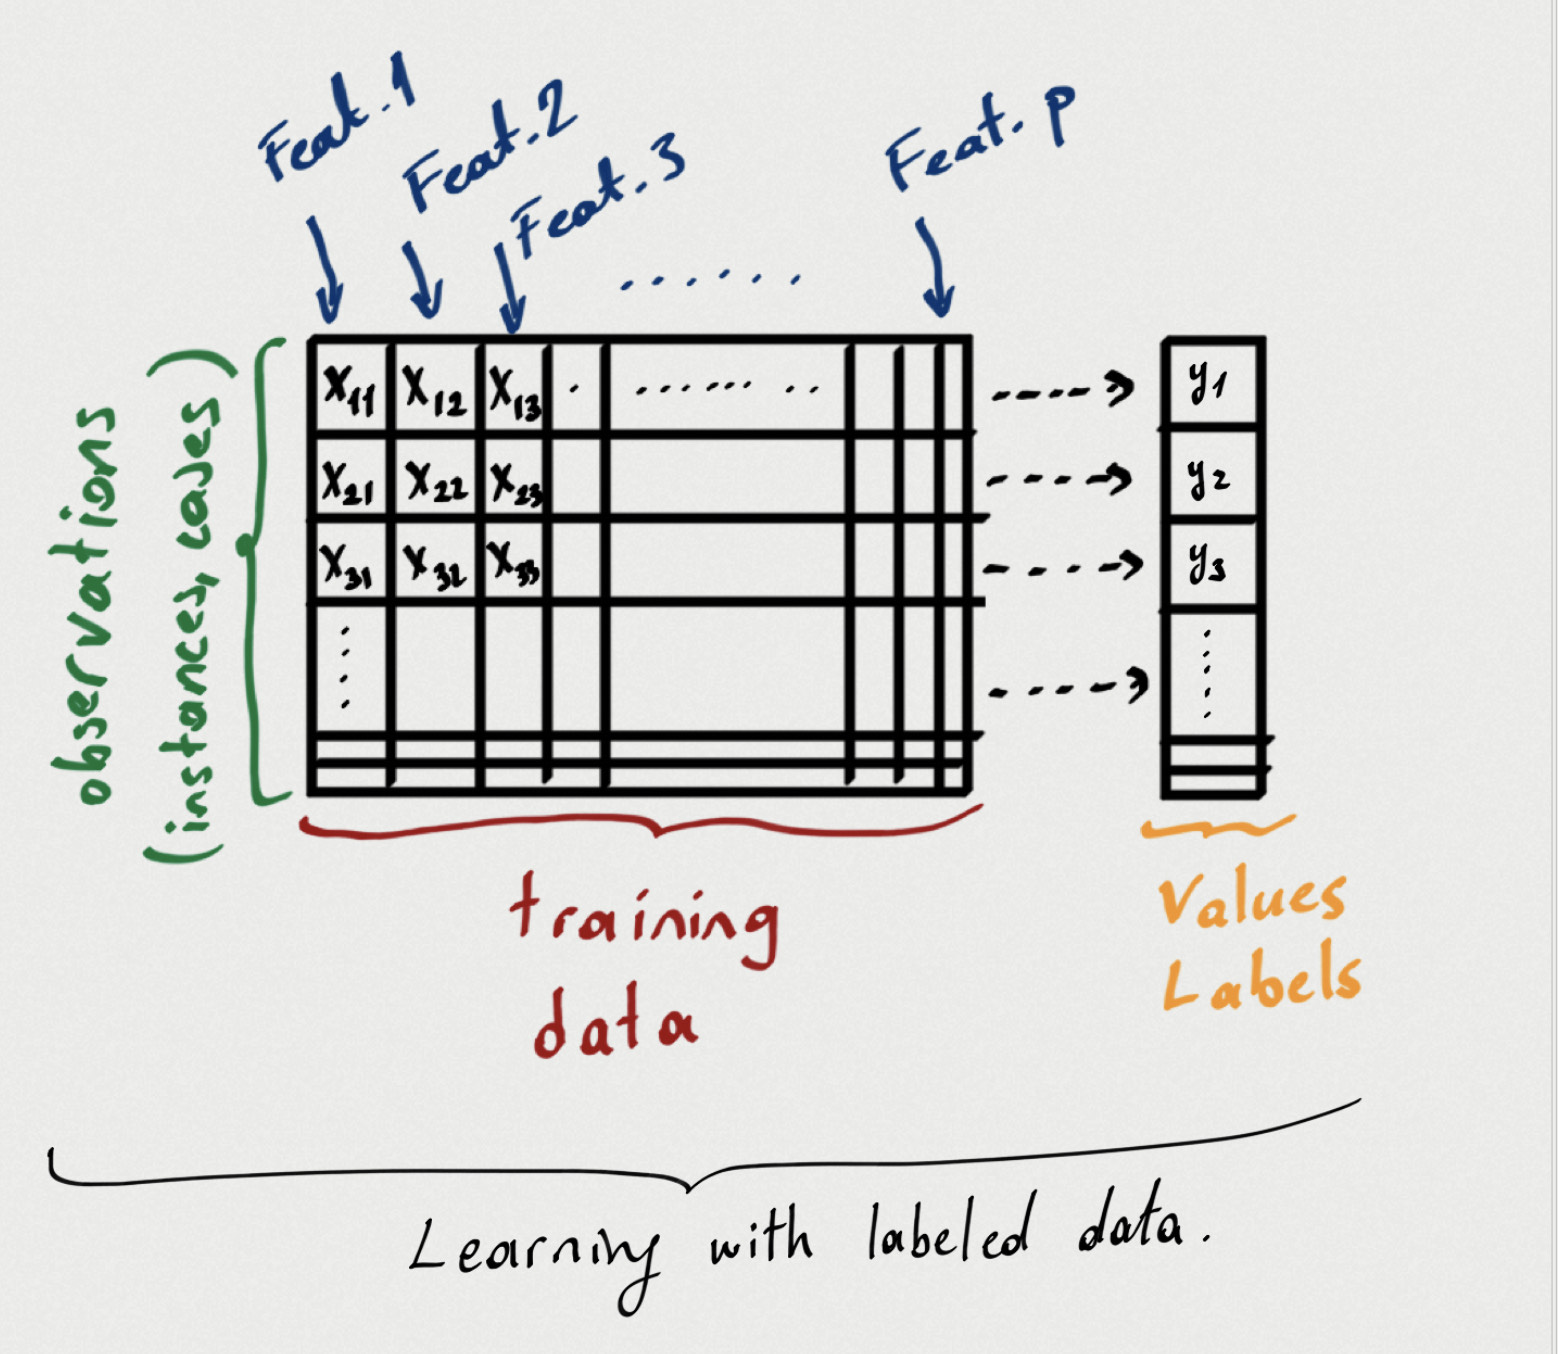 Feat. 1
Feat. 2
Feat. 3
......
Feat. p
observations
(instances, cases)
x11 x12 x13 . ..... ..... ..
y1
x21 x22 x23
y2
x31 x32 x33
y3
....
.....
training
data
Values
Labels
Learning with labeled data.